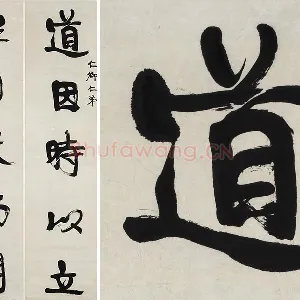 道因時以立
仁卿仁弟
道
shufawang.CN